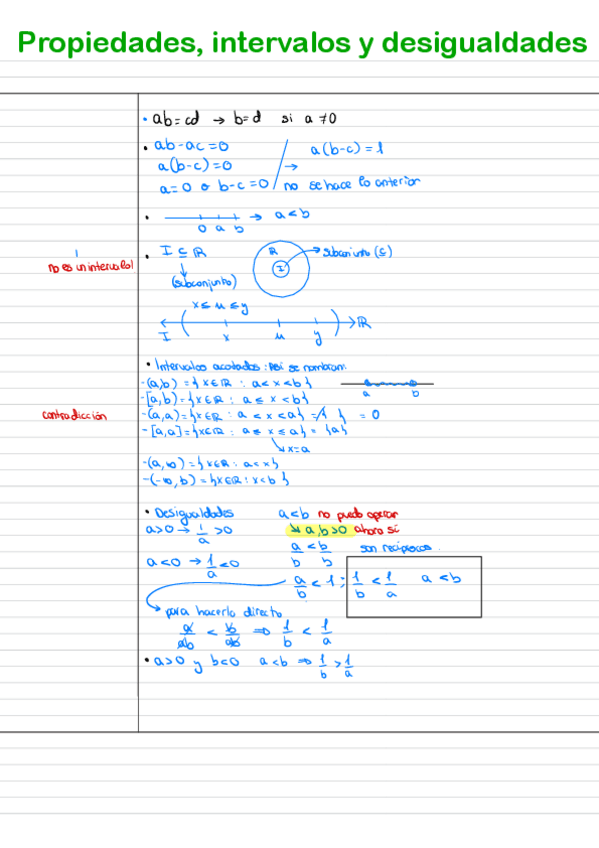 Propiedades, intervalos y desigualdades
• ab = cd → b = d si a ≠ 0
• ab - ac = 0 / a(b-c) = 1
a(b-c) = 0 →
a = 0 o b-c = 0 / no se hace lo anterior
• → a < b
0 a b
no es un intervalo!
• I ⊆ R
(subconjunto)
R
I
subconjunto (⊆)
x ≤ u ≤ y
R
I x u y
• Intervalos acotados: Así se nombran:
-(a,b) = {x∈R : a < x < b}
a b
-[a,b) = {x∈R : a ≤ x < b}
contradicción
-(a,a) = {x∈R : a < x < a} = { } = 0
-[a,a] = {x∈R : a ≤ x ≤ a} = {a}
x = a
-(a,∞) = {x∈R : a < x}
-(-∞,b) = {x∈R : x < b}
• Desigualdades a < b no puedo operar
a > 0 → 1/a > 0 ↘ a,b > 0 ahora sí
a/b < b/b son recíprocos
a < 0 → 1/a < 0
a/b < 1 ; 1/b < 1/a a < b
para hacerlo directo
a/ab < b/ab ⇒ 1/b < 1/a
• a > 0 y b < 0 a < b ⇒ 1/b > 1/a